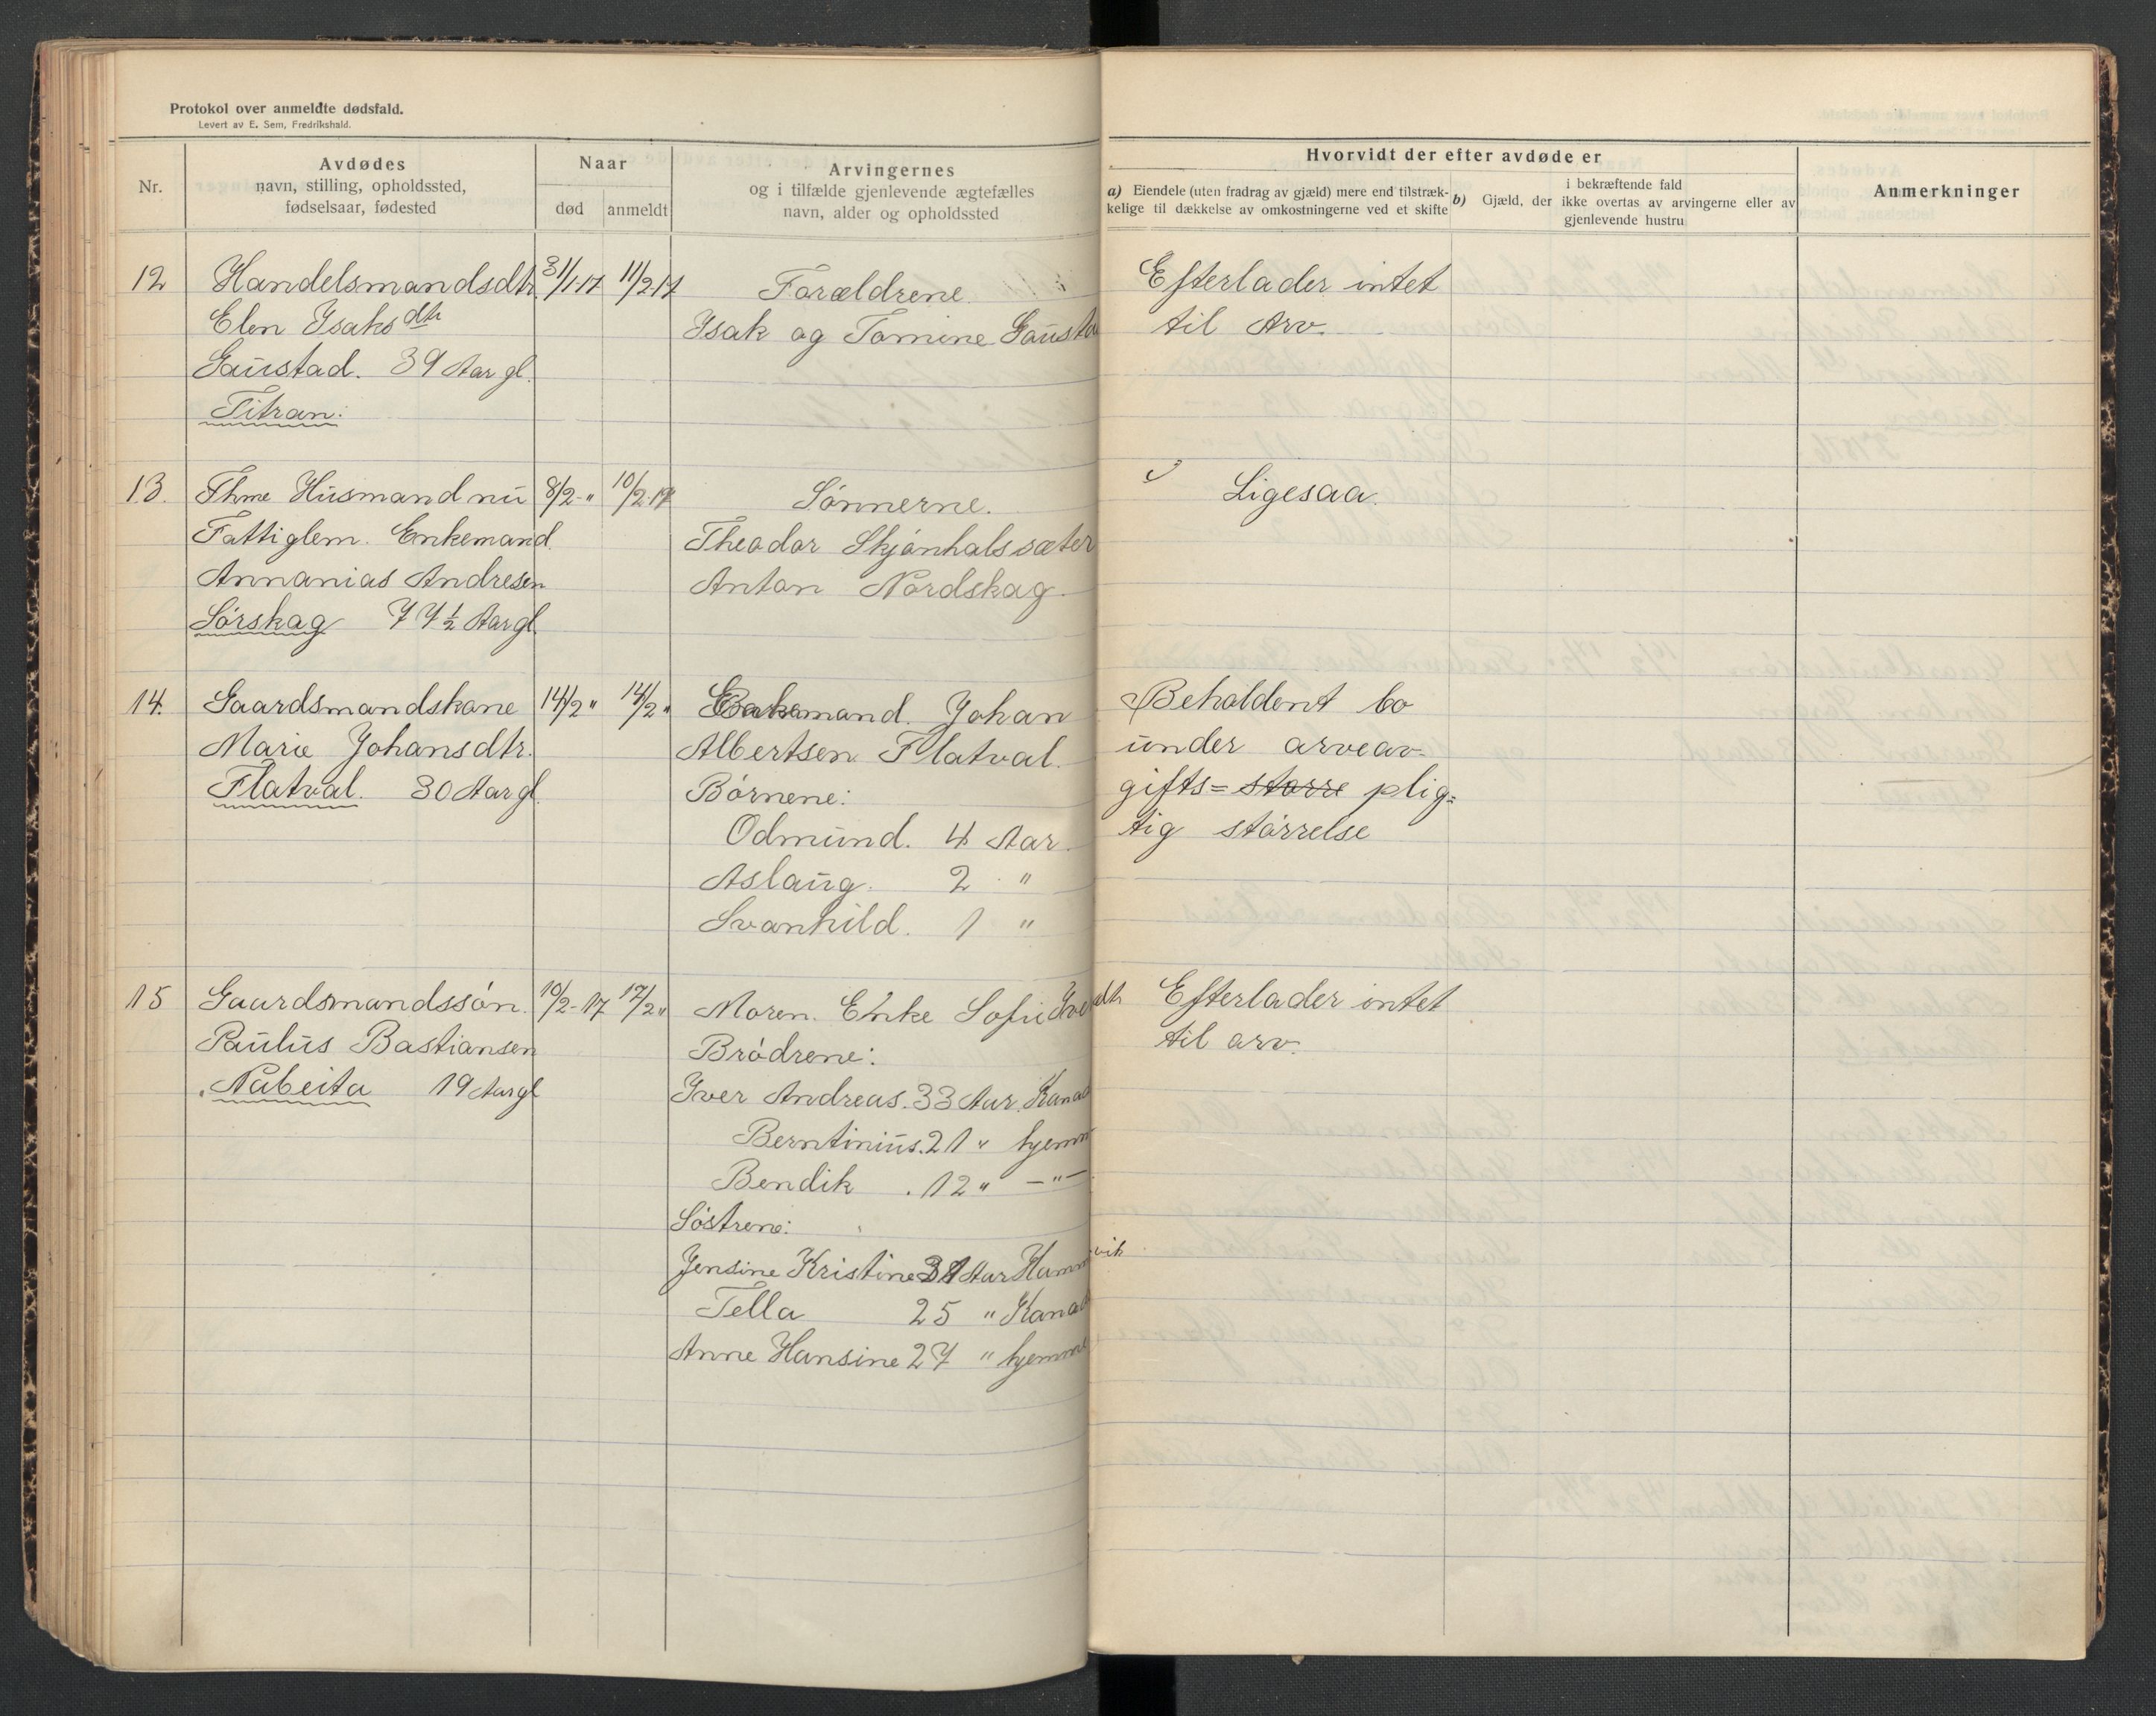 Protokol over anmeldte dødsfald.
Levert av E. Sem, Fredrikshald.
Nr.
Avdødes
navn, stilling, opholdssted,
fødselsaar, fødested
Naar
død
anmeldt
Arvingernes
og i tilfælde gjenlevende ægtefælles
navn, alder og opholdssted
Hvorvidt der efter avdøde er
a) Eiendele (uten fradrag av gjæld) mere end tilstræk-
kelige til dækkelse av omkostningerne ved et skifte
b) Gjæld, der
i bekræftende fald
ikke overtas av arvingerne eller av
gjenlevende hustru
Anmerkninger
12 Handelsmandsdtr. 31/1-17 11/2-17 Forældrene. Efterlader intet
Elen Isaksdtr Isak og Tomine Gausta til Arv.
Gaustad. 39 Aar gl.
Titran.
13. Fhme Husmand nu 8/2-" 10/2-17 Sønnerne. Ligesaa.
Fattiglem. Enkemand. Theodor Skjønhalssæter
Annanias Andresen Anton Nordskag.
Sørskag 77½ Aar gl.
14. Gaardsmandskone 14/2 " 14/2 " Enkemand. Johan Beholdent bo
Marie Johansdtr. Albertsen Flatval. under arveav-
Flatval. 30 Aar gl. Børnene: gifts= større plig=
Odmund. 4 Aar. tig størrelse
Aslaug. 2 "
Svanhild. 1 "
15 Gaardsmandssøn. 10/2-17 17/2 " Moren. Enke Sofie Efterlader intet
Paulus Bastiansen Brødrene: til arv.
Nabeita 19 Aar gl Iver Andreas. 33 Aar. Kanad
Berntinius. 21 " hjemm
Bendik . 12 " -"-
Søstrene:
Jensine Kristine 31 Aar Hammvik
Tella 25 " Kanad
Anne Hansine 27 " hjemme